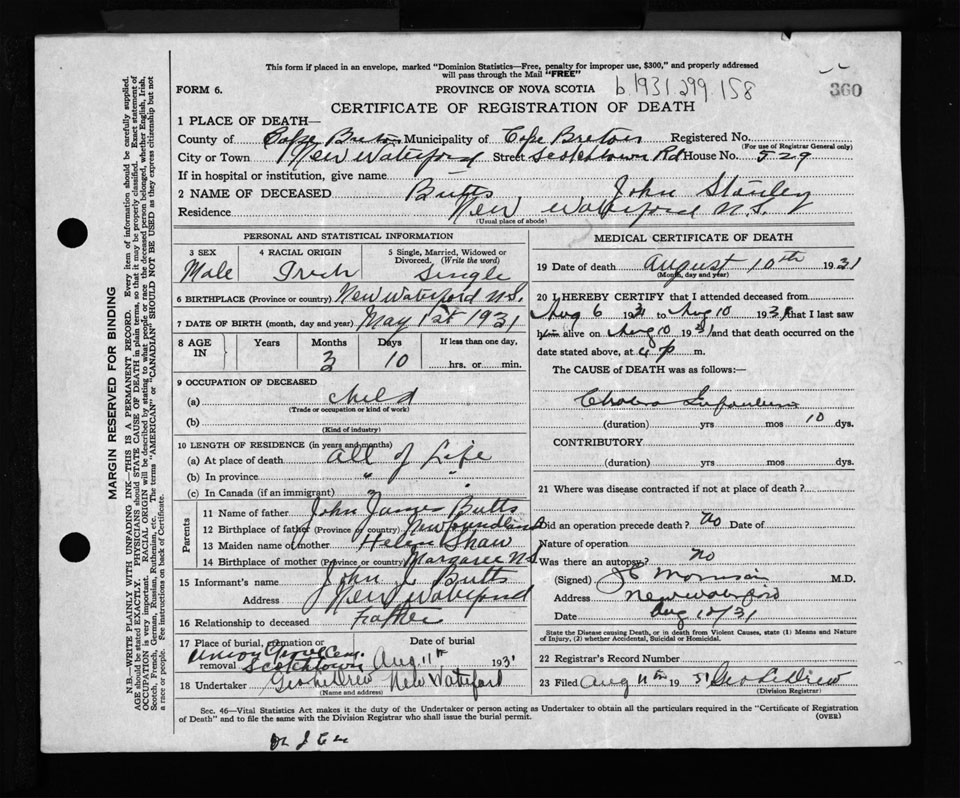 This form if placed in an envelope, marked "Dominion Statistics—Free, penalty for improper use, $300," and properly addressed
will pass through the Mail "FREE"
FORM 6.
PROVINCE OF NOVA SCOTIA
b 1931.299.158
360
CERTIFICATE OF REGISTRATION OF DEATH
1 PLACE OF DEATH—
County of Cape Breton Municipality of Cape Breton Registered No.
(For use of Registrar General only)
City or Town New Waterford Street Scotchtown Rd House No. 529
If in hospital or institution, give name
2 NAME OF DECEASED Butts John Stanley
Residence New Waterford N.S.
(Usual place of abode)
PERSONAL AND STATISTICAL INFORMATION
3 SEX
Male
4 RACIAL ORIGIN
Irish
5 Single, Married, Widowed or Divorced. (Write the word)
Single
6 BIRTHPLACE (Province or country) New Waterford N.S.
7 DATE OF BIRTH (month, day and year) May 1st 1931
8 AGE IN
Years
Months 3
Days 10
If less than one day,
hrs. or min.
9 OCCUPATION OF DECEASED
(a) child
(Trade or occupation or kind of work)
(b)
(Kind of industry)
10 LENGTH OF RESIDENCE (in years and months)
(a) At place of death All of Life
(b) In province " "
(c) In Canada (if an immigrant)
Parents
11 Name of father John James Butts
12 Birthplace of father (Province or country) Newfoundland
13 Maiden name of mother Helen Shaw
14 Birthplace of mother (Province or country) Margaree N.S.
15 Informant's name John J. Butts
Address New Waterford
16 Relationship to deceased Father
17 Place of burial, cremation or
removal Union Grove Cem. Scotchtown
Date of burial
Aug 11th 1931
18 Undertaker Geo LeDrew New Waterford
(Name and address)
MEDICAL CERTIFICATE OF DEATH
19 Date of death August 10th 1931
(Month, day and year)
20 I HEREBY CERTIFY that I attended deceased from
Aug 6 1931 to Aug 10 1931 that I last saw
him alive on Aug 10 1931 and that death occurred on the
date stated above, at 4 p m.
The CAUSE of DEATH was as follows:—
Cholera Infantum
(duration) yrs mos 10 dys.
CONTRIBUTORY
(duration) yrs mos dys.
21 Where was disease contracted if not at place of death?
Did an operation precede death? No Date of
Nature of operation
Was there an autopsy? No
(Signed) Morrison M.D.
Address New Waterford
Date Aug 10/31
State the Disease causing Death, or in death from Violent Causes, state (1) Means and Nature of Injury, (2) whether Accidental, Suicidal or Homicidal.
22 Registrar's Record Number
23 Filed Aug 11th 1931 Geo LeDrew
(Division Registrar)
Sec. 46—Vital Statistics Act makes it the duty of the Undertaker or person acting as Undertaker to obtain all the particulars required in the "Certificate of Registration
of Death" and to file the same with the Division Registrar who shall issue the burial permit.
(OVER)
MARGIN RESERVED FOR BINDING
N.B.—WRITE PLAINLY WITH UNFADING INK—THIS IS A PERMANENT RECORD. Every item of information should be carefully supplied.
AGE should be stated EXACTLY. PHYSICIANS should STATE CAUSE OF DEATH in plain terms, so that it may be properly classified. Exact statement of
OCCUPATION is very important. RACIAL ORIGIN will be described by stating to what people or race the deceased person belonged, whether English, Irish,
Scotch, French, German, Russian, Ruthenian, etc. The terms "AMERICAN" or "CANADIAN" SHOULD NOT BE USED as they express citizenship but not
a race or people. See instructions on back of Certificate.